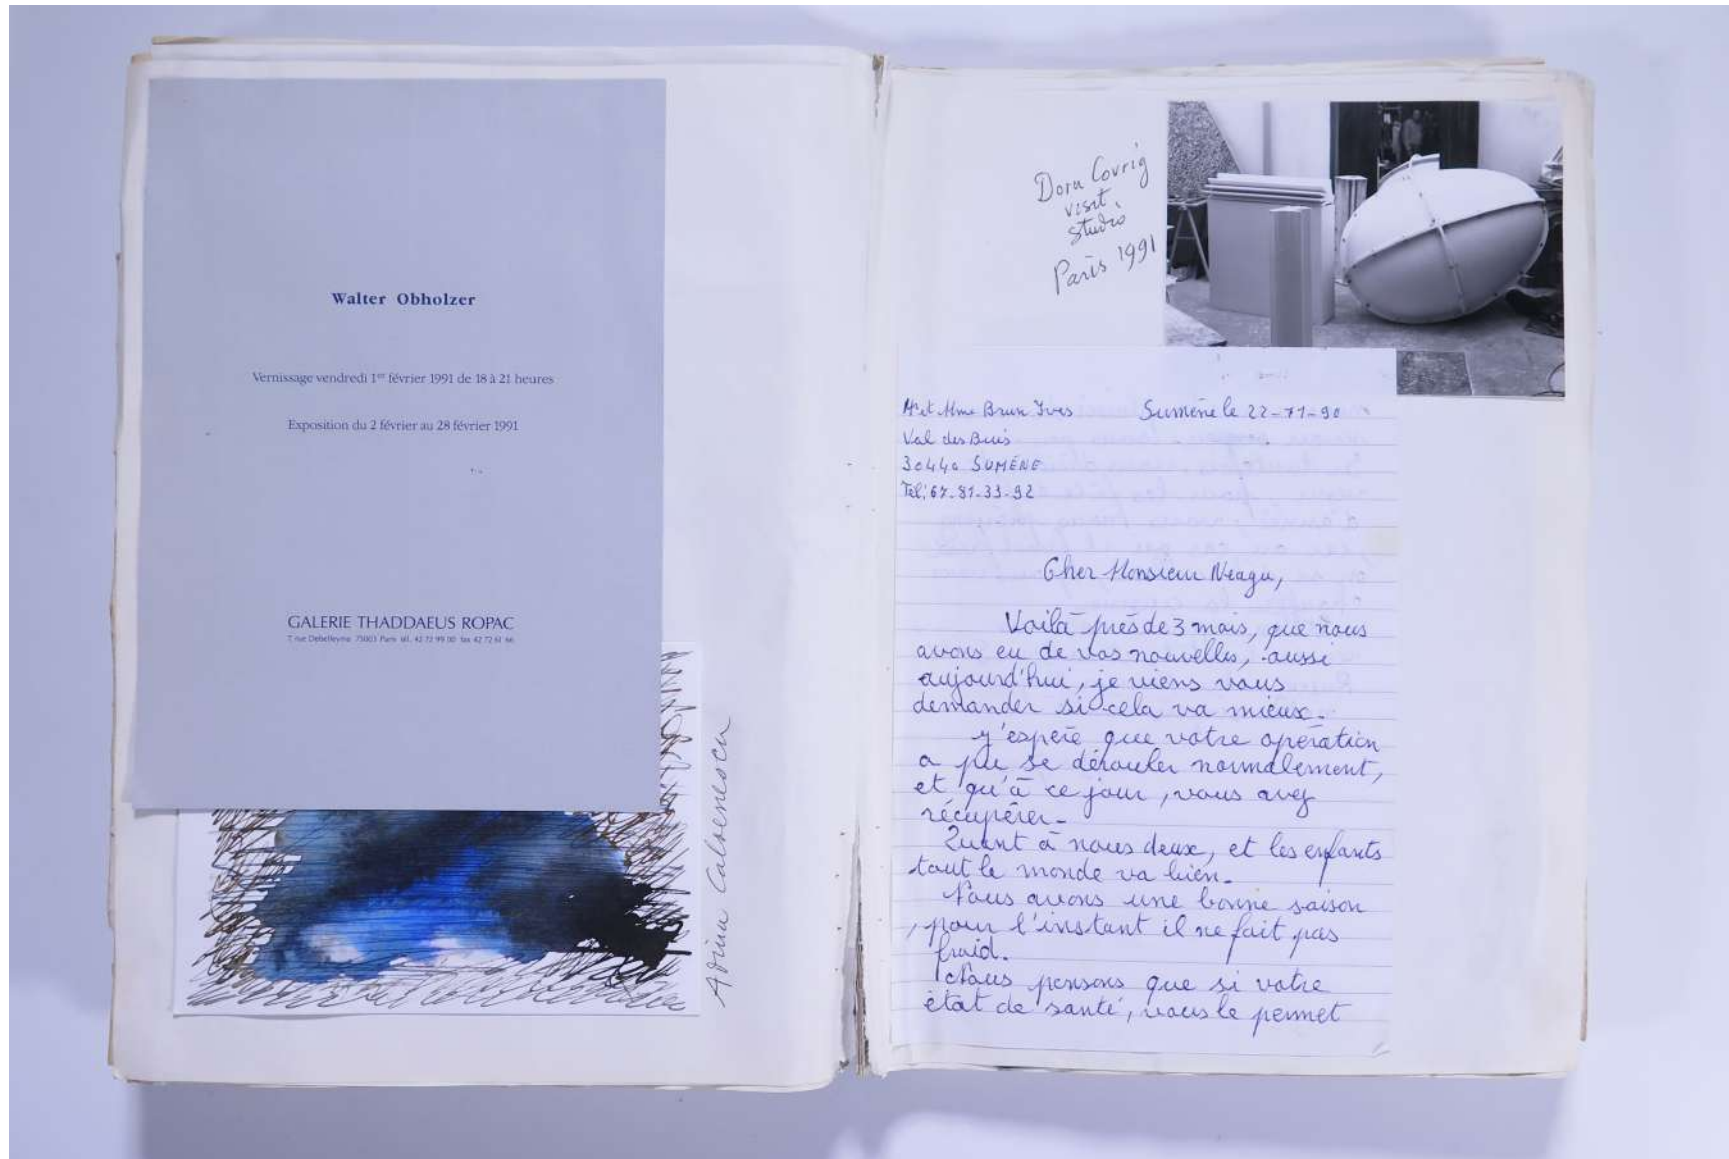 Walter Obholzer
Vernissage vendredi 1er février 1991 de 18 à 21 heures
Exposition du 2 février au 28 février 1991
GALERIE THADDAEUS ROPAC
7, rue Debelleyme 75003 Paris tél. 42 72 99 00 fax 42 72 61 66
Adina Caloenescu
Dora Covrig
visit
studio
Paris 1991
Mr et Mme Brun Yves Sumène le 22-11-90
Val des Buis
30440 SUMÈNE
Tél: 67.81.33.92
Cher Monsieur Neagu,
Voilà près de 3 mois, que nous
avons eu de vos nouvelles, aussi
aujourd'hui, je viens vous
demander si cela va mieux.
J'espère que votre opération
a pu se dérouler normalement,
et qu'à ce jour, vous avez
récupérer.
Quant à nous deux, et les enfants
tout le monde va bien.
Nous avons une bonne saison
, pour l'instant il ne fait pas
froid.
Nous pensons que si votre
état de santé, vous le permet